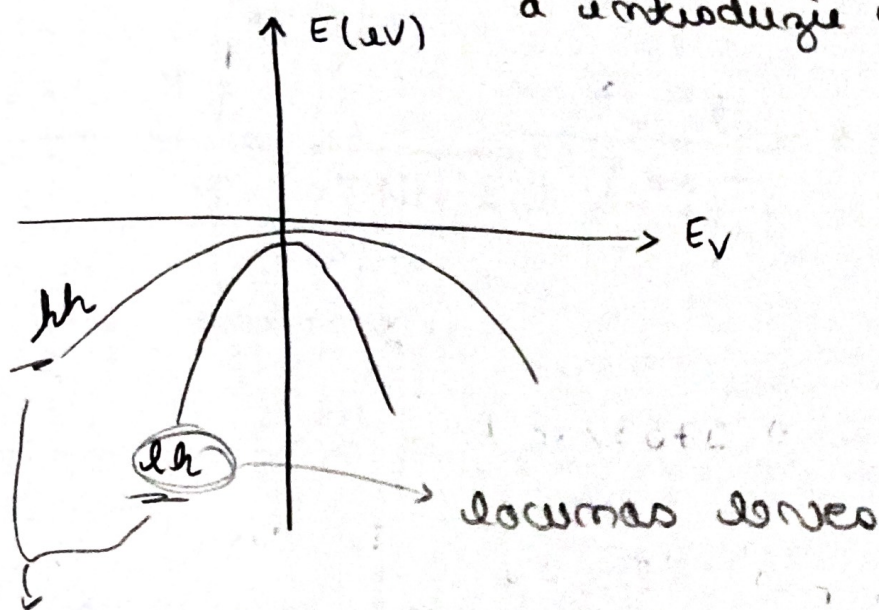 a introduzir
E(eV)
Ev
hh
lh
lacunas leves